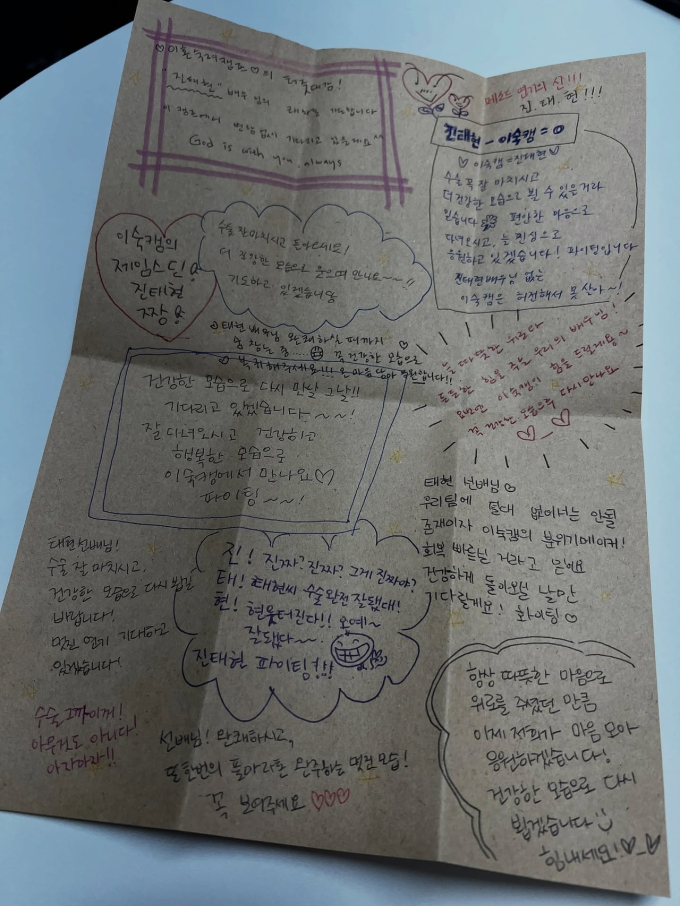 ♡이혼숙려캠프♡의 최고매력!
"진태현" 배우님의 쾌차를 기도합니다
이 장소에서 변함없이 기다리고 있을게요^^
God is with you always
메소드 연기의 신!!!
진.태.현!!!
진태현 - 이숙캠 = 0
♡ 이숙캠 = 진태현 ♡
수술 꼭 잘 마치시고
더 건강한 모습으로 뵐 수 있을거라
믿습니다 편안한 마음으로
다녀오시고, 늘 진심으로
응원하고 있겠습니다! 파이팅입니다
진태현배우님 없는
이숙캠은 허전해서 못 산다~!
이숙캠의
제임스딘
진태현
짱
수술 잘 마치시고 돌아오세요!
더 건강한 모습으로 웃으며 만나요~~!!
기도하고 있겠습니당
태현 배우님 완쾌하실 때까지
숨 참는 중..... 꼭 건강한 모습으로
복귀해주세요!!! 온 마음 담아 응원합니다!!
건강한 모습으로 다시 만날 그날!!
기다리고 있겠습니다~~!
잘 다녀오시고 건강하고
행복한 모습으로
이숙캠에서 만나요♡
파이팅~~!
늘 따뜻한 위로와
든든한 힘을 주는 우리의 배우님!
오번엔 이숙캠이 힘을 드릴게요~
꼭 건강한 모습으로 다시만나요
태현 선배님♡
우리팀에 절대 없어서는 안될
존재이자 이숙캠의 분위기메이커!
회복 빠르실 거라고 믿어요
건강하게 돌아오실 날만
기다릴게요! 화이팅♡
태현선배님!
수술 잘 마치시고,
건강한 모습으로 다시 뵙길
바랍니다!
멋진 연기 기대하고
있겠습니다!
진! 진짜? 진짜? 그게 진짜야?
태! 태현씨 수술완전 잘됐대!
현! 현웃터진다!! 오예~
잘됐다~~
진태현 파이팅!!!
수술 그까이꺼!
아무것도 아니다!
아자아자!!
선배님! 완쾌하시고,
또한번의 풀마라톤 완주하는 멋진 모습!
꼭 보여주세요♡♡♡
항상 따뜻한 마음으로
위로를 주셨던 만큼
이제 저희가 마음 모아
응원하겠습니다!
건강한 모습으로 다시
뵙겠습니다
힘내세요!